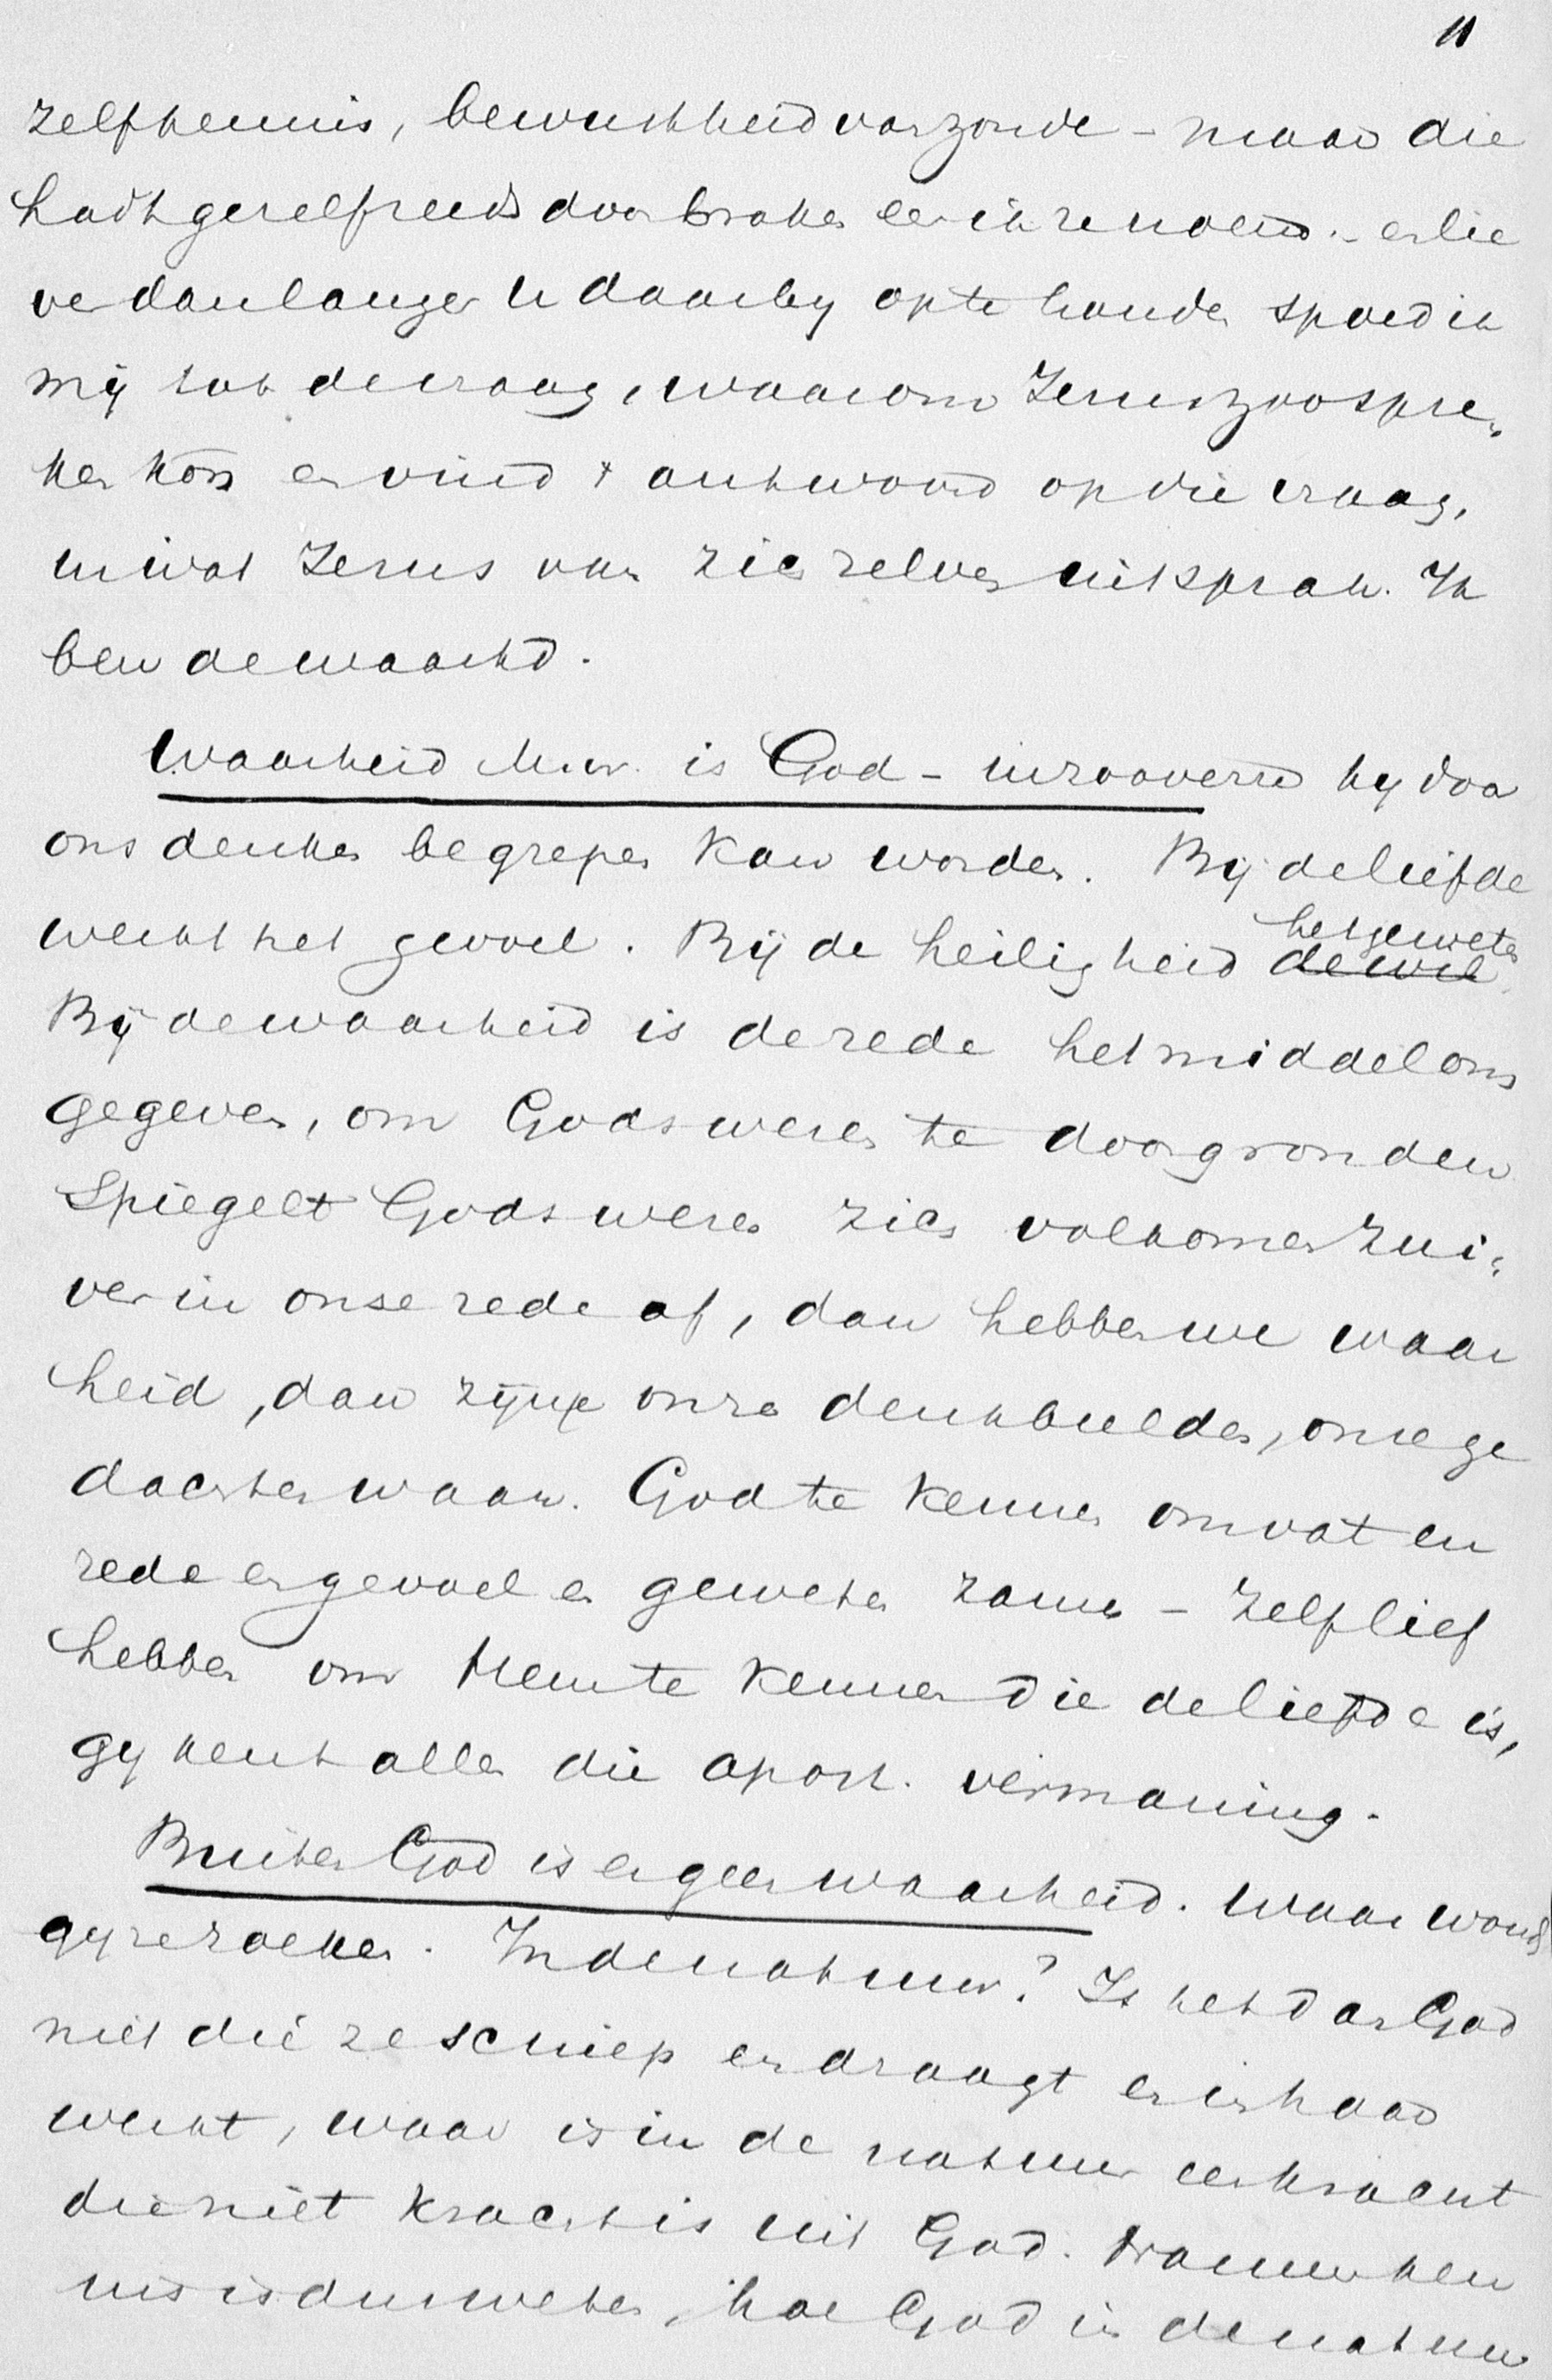 11
zelfkennis, bewustheid van zonde – maar die
hadt ge zelf reeds doorbroken eer ik ze noem. en lie
ver dan langer U daarby op te houden spoed ik
mij tot de vraag, waarom Jezus zoo spre-
ken kon en vind 't antwoord op die vraag,
in wat Jezus van zich zelven uitsprak. Ik
ben de waarhd.
Waarheid M. is God – in zooverre hy door
ons denken begrepen kan worden. Bij de liefde
werkt het gevoel. Bij de heiligheid de wil het geweten
Bij de waarheid is de rede het middel ons
gegeven, om Gods wezen te doorgronden
Spiegelt Gods wezen zich volkomen zui-
ver in onse rede af, dan hebben we waar
heid, dan zijn onze denkbeelden, onze ge
dachten waar. God te kennen omvat en
rede en gevoel en geweten zamen – Zelf lief
hebben om Hem te kennen die de liefde is,
gy kent allen die apost. vermaning.
Buiten God is er geen waarheid. Waar woudt
gy ze zoeken. In de natuur? Is het dan God
niet die ze schiep en draagt en in haar
werkt, waar is in de natuur een kracht
die niet kracht is uit God. Natuurken
nis is dus weten, hoe God in de natuur